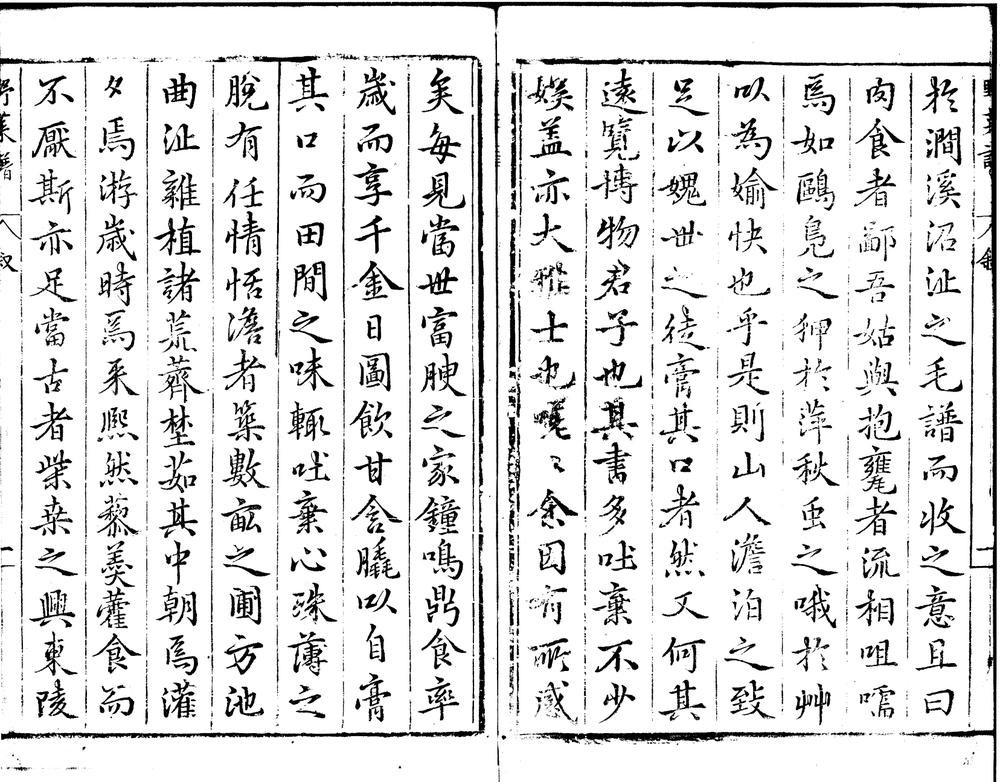 於澗溪沼沚之毛譜而收之意且曰
肉食者鄙吾姑與抱甕者流相咀嚅
焉如鷗鳧之狎於萍秋虫之哦於艸
以為婾快也乎是則山人澹泊之致
足以媿世之徒膏其口者然又何其
遠覽博物君子也其書多吐棄不少
娛盖亦大雅士也嘆〻余因有所感
矣每見當世富腴之家鐘鳴鼎食率
歲而享千金日圖飲甘含膬以自膏
其口而田間之味輒吐棄心殊薄之
脫有任情恬澹者築數畝之圃方池
曲沚雜植諸荒薺埜茹其中朝焉灌
夕焉游歲時焉采熈然藜羮藿食而
不厭斯亦足當古者柴桑之興東陵